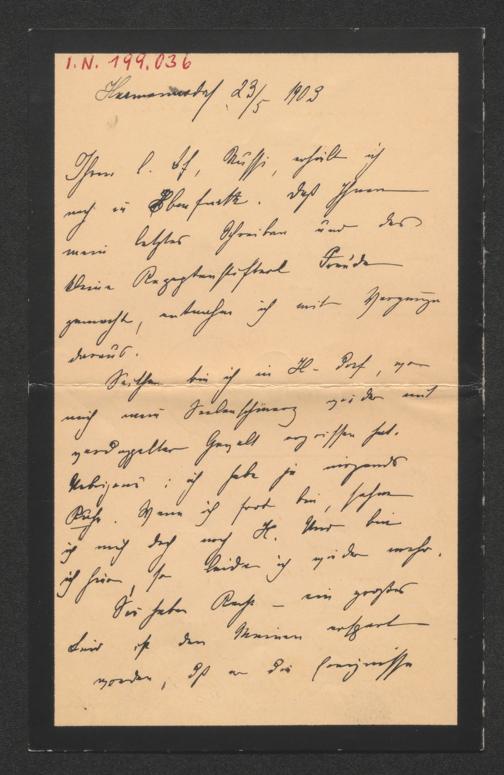 I.N. 199.036
Hermannsdorf 23/5 1903
Ihren l. Bf, Nussi, erhielt ich
noch in Ebenfurth. Daß Ihnen
mein letztes Schreiben und das
kleine Freude
gemacht, entnahm ich mit Vergnügen
daraus.
Seither bin ich in H-dorf, wo
mich mein Seelenschmerz wieder mit
verdoppelter Gewalt ergriffen hat.
Uebrigens: ich habe ja nirgends
Ruhe. Wenn ich fort bin, sehne
ich mich doch nach H. Und bin
ich hier, so leide ich wieder mehr.
Sie haben Recht – ein großes
Leid ist den Meinen erspart
worden, daß er die Ereignisse